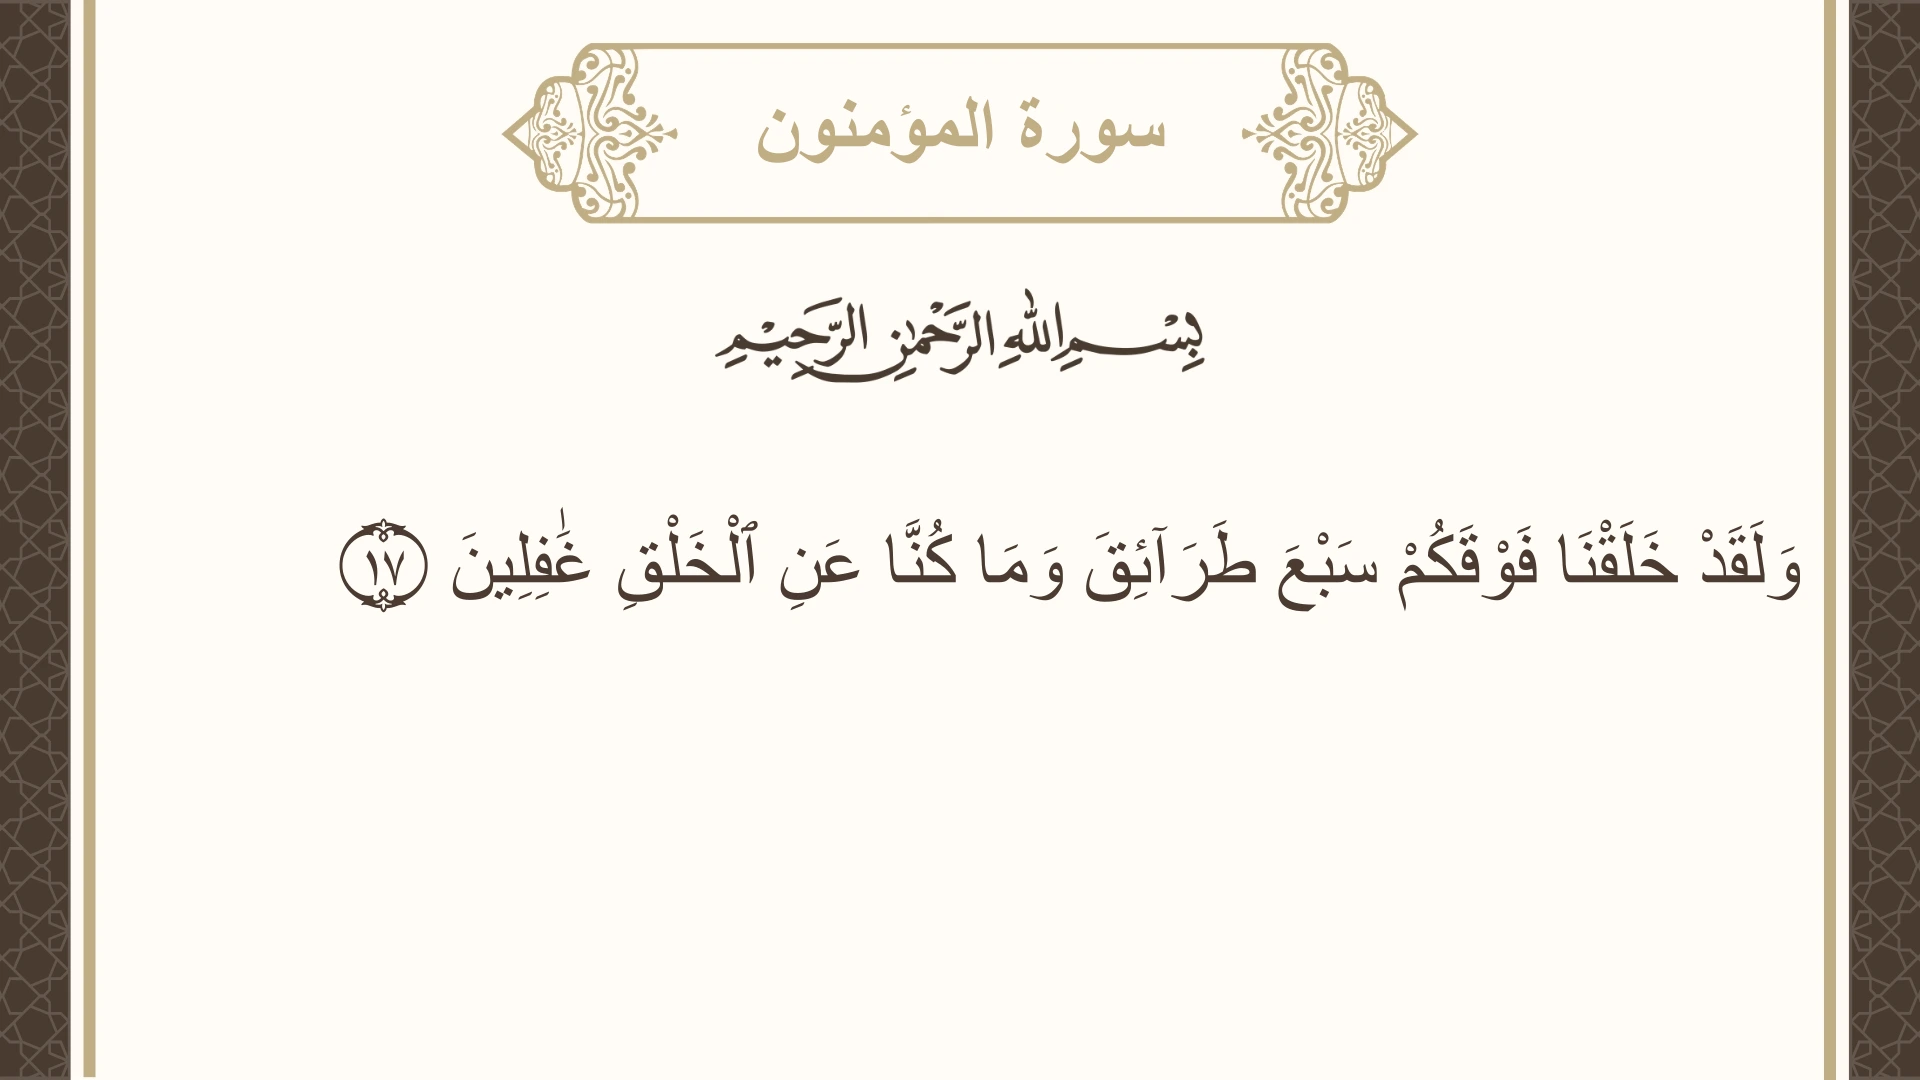 سورة المؤمنون
بِسْمِ اللهِ الرَّحْمٰنِ الرَّحِيْمِ
وَلَقَدْ خَلَقْنَا فَوْقَكُمْ سَبْعَ طَرَآئِقَ وَمَا كُنَّا عَنِ ٱلْخَلْقِ غَٰفِلِينَ ١٧